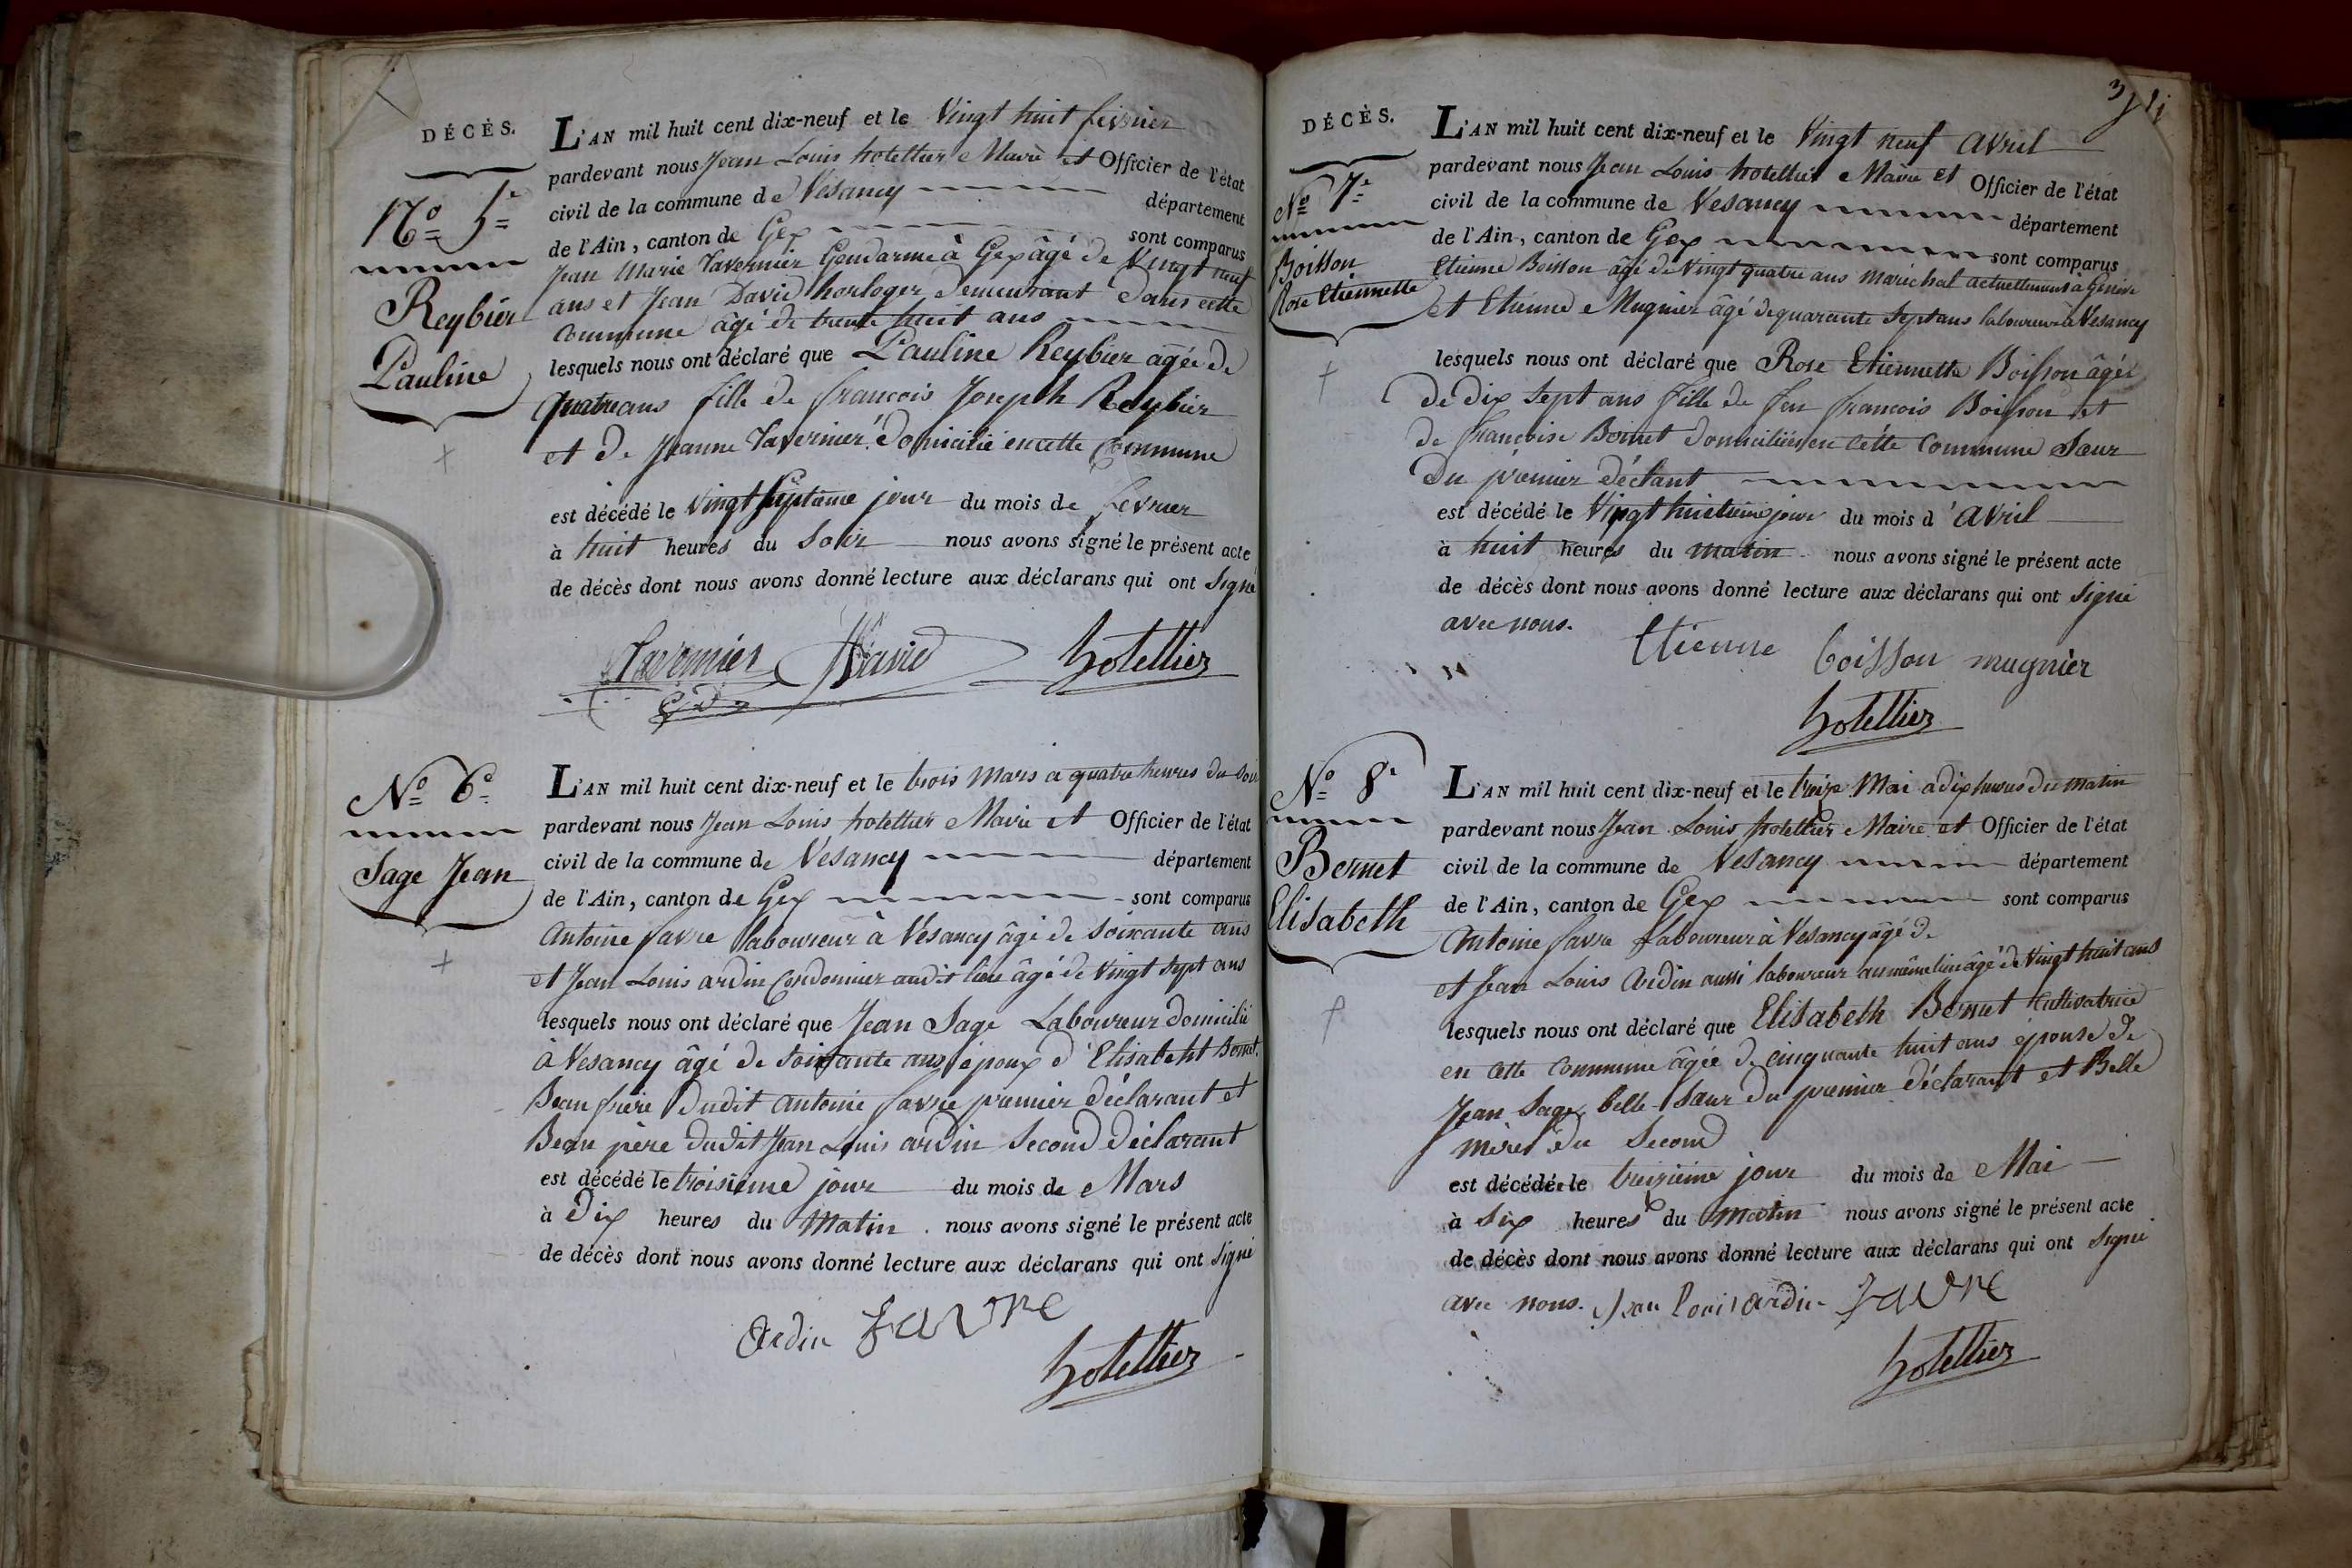 DÉCÈS.
Nº 5e
Reybier
Pauline
L'AN mil huit cent dix-neuf et le Vingt huit fevrier
pardevant nous Jean Louis hotellier Maire et Officier de l'état
civil de la commune de Vésancy département
de l'Ain, canton de Gex sont comparus
Jean Marie Tavernier Gendarme à Gex âgé de Vingt neuf
ans et Jean David horloger demeurant dans cette
commune âgé de trente huit ans
lesquels nous ont déclaré que Pauline Reybier agée de
quatre ans fille de francois Joseph Reybier
et de Jeanne Tavernier domicilié en cette Commune
est décédé le vingt septième jour du mois de fevrier
à huit heures du Soir nous avons signé le présent acte
de décès dont nous avons donné lecture aux déclarans qui ont Signé
Tavernier JDavid hotellier
Nº 6e
Sage Jean
L'AN mil huit cent dix-neuf et le trois Mars a quatre heures du Soir
pardevant nous Jean Louis hotellier Maire et Officier de l'état
civil de la commune de Vésancy département
de l'Ain, canton de Gex sont comparus
Antoine favre laboureur à Vésancy âgé de soixante ans
et Jean Louis ardin Cordonnier audit lieu âgé de vingt sept ans
lesquels nous ont déclaré que Jean Sage Laboureur domicilié
à Vesancy âgé de soixante ans époux d'Elisabeht Bornet
Beau frère dudit antoine favre premier déclarant et
Beau père dudit Jean Louis ardin Second déclarant
est décédé le troisième jour du mois de Mars
à Dix heures du Matin nous avons signé le présent acte
de décès dont nous avons donné lecture aux déclarans qui ont Signé
Ardin FAVRE
hotellier
DÉCÈS.
Nº 7e
Boisson
Rose Etiennette
L'AN mil huit cent dix-neuf et le Vingt neuf Avril
pardevant nous Jean Louis hotellier Maire et Officier de l'état
civil de la commune de Vesancy département
de l'Ain, canton de Gex sont comparus
Etienne Boisson âgé de Vingt quatre ans maréchal actuellement à Genève
et Etienne Mugnier âgé de quarante Sept ans laboureur à Vesancy
lesquels nous ont déclaré que Rose Etiennette Boisson âgée
de dix Sept ans fille de feu francois Boisson et
de francoise Bornet domiciliée en cette Commune Sœur
du prémier déclant
est décédé le Vingt huitième jour du mois d'Avril
à huit heures du matin nous avons signé le présent acte
de décès dont nous avons donné lecture aux déclarans qui ont Signé
avec nous.
Etienne boisson mugnier
hotellier
Nº 8e
Bernet
Elisabeth
L'AN mil huit cent dix-neuf et le treize Mai a dix heures du matin
pardevant nous Jean Louis hotellier Maire et Officier de l'état
civil de la commune de Vesancy département
de l'Ain, canton de Gex sont comparus
Antoine favre laboureur à Vesancy âgé de
et Jean Louis Ardin aussi laboureur au même lieu âgé de Vingt huit ans
lesquels nous ont déclaré que Elisabeth Bernet Cultivatrice
en cette commune âgée de cinquante huit ans épouse de
Jean Sage, belle-Sœur du premier déclarant et Belle
mère du Second
est décédée le treizième jour du mois de Mai
à six heures du matin nous avons signé le présent acte
de décès dont nous avons donné lecture aux déclarans qui ont Signé
avec nous. Jean louis ardin FAVRE
hotellier